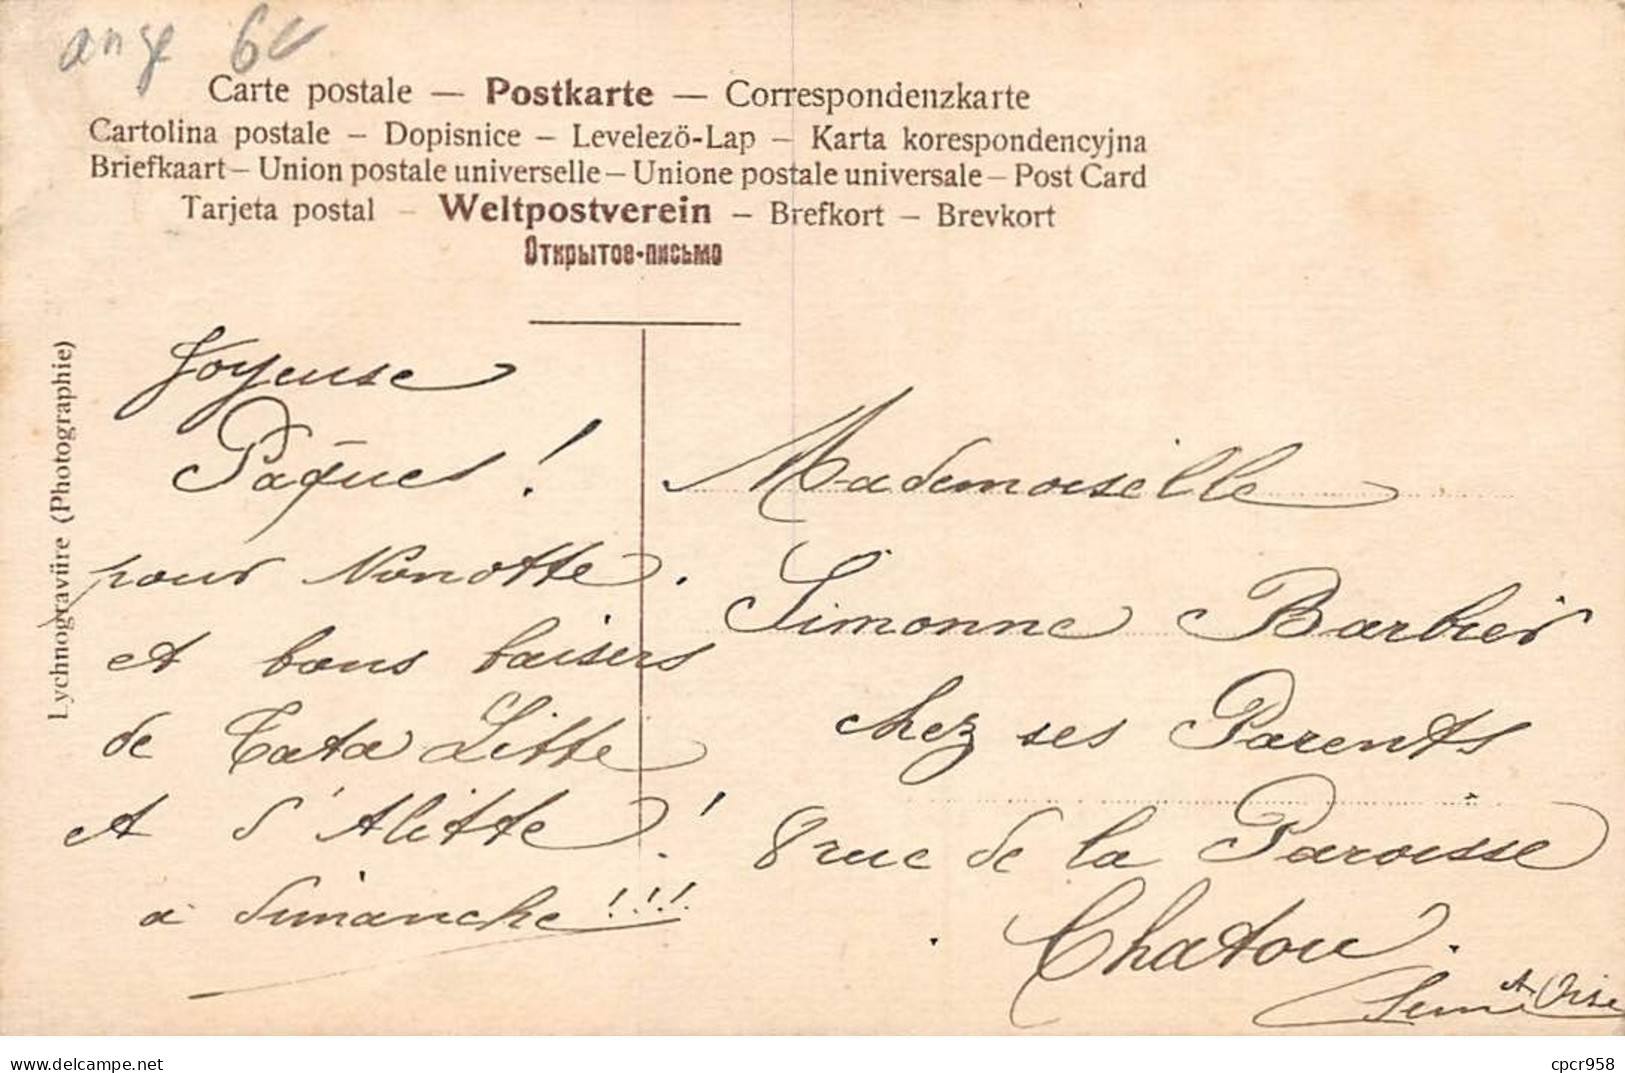 ange 6c
Carte postale — Postkarte — Correspondenzkarte
Cartolina postale – Dopisnice – Levelezö-Lap – Karta korespondencyjna
Briefkaart – Union postale universelle – Unione postale universale – Post Card
Tarjeta postal – Weltpostverein – Brefkort – Brevkort
Открытое-письмо
Lychnograviire (Photographie)
Joyeuse
Pâques !
pour Nonotte.
et bons baisers
de Tata Litte
et d'Alitte !
à dimanche !!!!
Mademoiselle
Simonne Barbier
chez ses Parents
8 rue de la Paroisse
Chatou.
Seine et Oise
delcampe.net
cpcr958